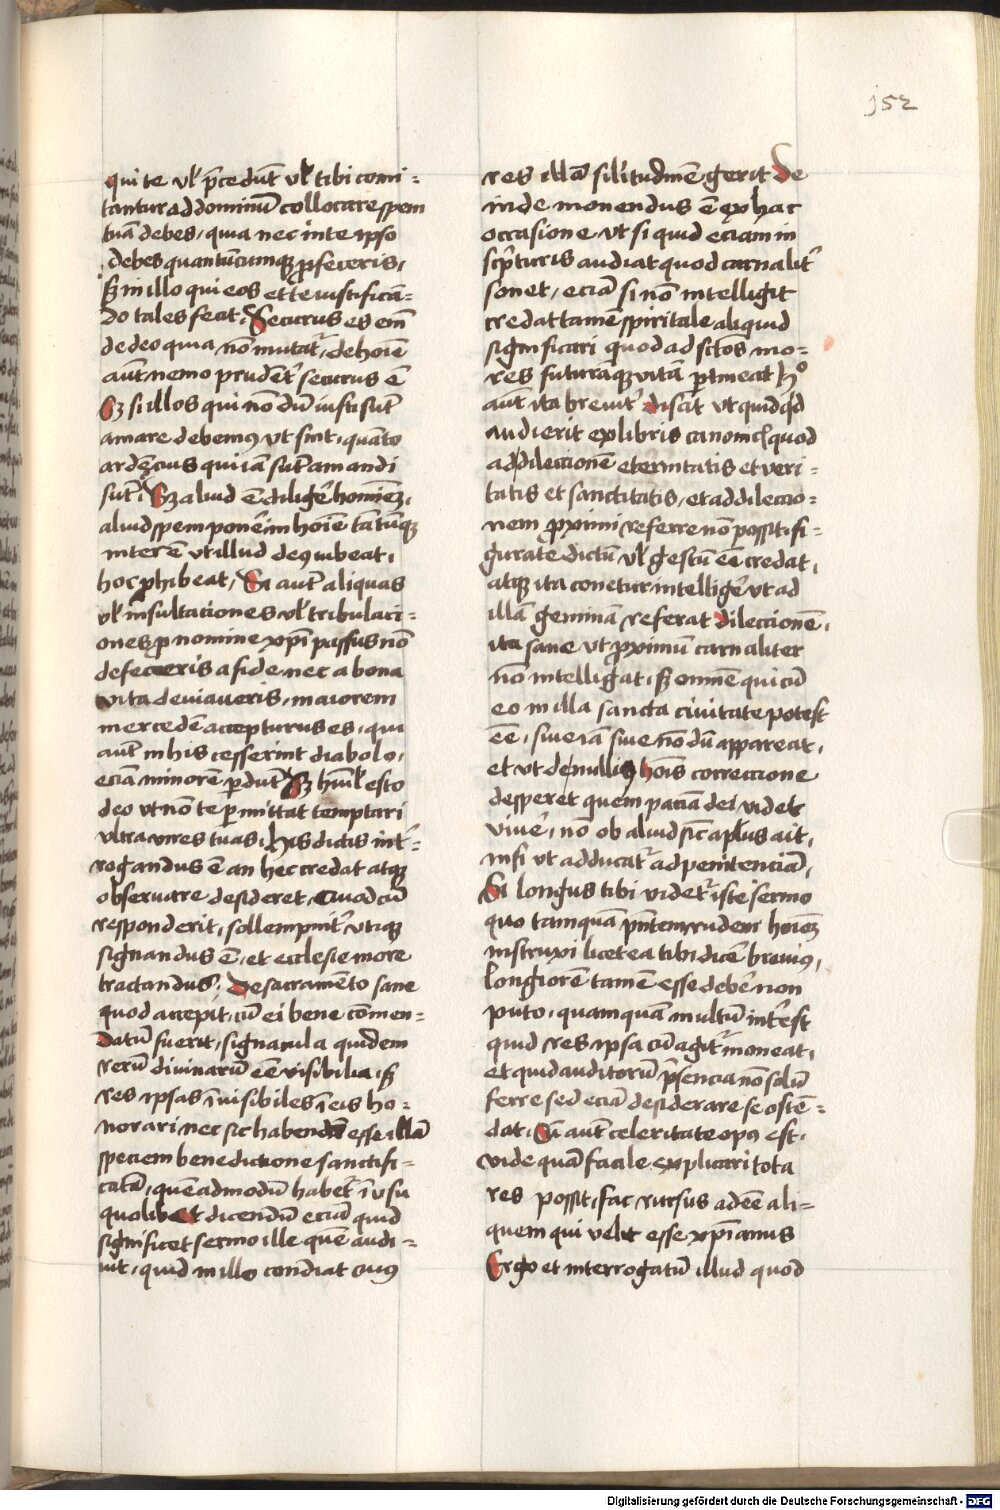 152
qui te vl̕ p̄cedūt vl̕ tibi comi=
tantur ad dominū collocare spem
tuā debes, quia nec in te ipso
debes quantūcumqȝ ꝓfeceris,
sȝ in illo qui eos et te iustificā=
do tales fecit. Securus es em̄
de deo quia nō mutat᷑, de hoīe
aūt nemo prudent᷑ securus ē
Sȝ si illos qui nō dū iusti sūt
amare debemꝰ vt sint, quāto
ardēcius qui iā sūt amandi
sūt. Sȝ aliud ē diligē hominēȝ,
aliud spem ponē in hoīe tātūqȝ
inter ē vt illud deꝰ iubeat,
hoc ꝓhibeat, Si aūt aliquas
vl̕ insultaciones vl̕ tribulaci=
ones ꝓ nomine xp̄i passus nō
defeceris a fide nec a bona
vita deviaveris, maiorem
mercedē accepturus es, qui
aūt in his cesserint diabolo,
eciā minorē ꝑdūt Sȝ hūil̕ esto
deo vt nō te ꝑmittat temptari
vltra vires tuas, his dictis int᷑=
rogandus ē an hec credat atqȝ
observare desideret, Quod cū
responderit, sollempnit᷑ vtiqȝ
signandus ē, et ecclesie more
tractandus. De sacramēto sane
quod accepit, cū ei bene cōmen=
datū fuerit, signacula quidem
rerū divinarū eē visibilia, sȝ
res ipsas īvisibiles ī eis ho=
norari nec sic habendā esse illā
speciem benedictione sanctifi=
catā, quēadmodū habet᷑ ī vsu
quolibet dicendū eciā quid
significet sermo ille quē audi=
vit, quid in illo condiat cuiꝰ
res illā sīlitudinē gerit De
inde monendus ē ex hac
occasione vt si quid eciam in
scp̄turis audiat quod carnalit᷑
sonet, eciā si nō intelligit
credat tamē spiritale aliquid
significari quod ad sctōs mo=
res futurāqȝ vitā ꝑtineat hᵒ
aūt ita brevit᷑ discit vt quidqd̄
audierit ex libris canonicꝭ quod
ad dileccionē eternitatis et veri=
tatis et sanctitatis, et ad dileccio=
nem ꝓximi referre nō possit, fi=
gurate dictū vl̕ gestū eē credat,
atqȝ ita conetur intelligē vt ad
illā geminā referat dileccionē,
ita sane vt ꝓximū carnaliter
nō intelligat, sȝ omnē qui cū
eo in illa sancta civitate potest
eē, sive iā sive nō dū appareat,
et vt de nulliꝰ hoīs correccione
desperet quem paciā dei videt
vivē, nō ob aliud sic̄ apl̄us ait,
nisi vt adducat᷑ ad penitenciā,
Si longus tibi videt᷑ iste sermo
quo tamquā p̄ntem rudem hoīeȝ
instruxi licet ea tibi dicē breviꝰ,
longiorē tamē esse debē non
puto, quamquā multū int᷑est
quid res ipsa cū agit᷑ moneat,
et quid auditorū p̄sencia nō solū
ferre sed eciā desiderare se ostē=
dat, Cū aūt celeritate opꝰ est,
vide quā facile explicari tota
res possit, fac rursus adeē ali=
quem qui velit esse xp̄ianus
Ergo et interrogatū illud quod
Digitalisierung gefördert durch die Deutsche Forschungsgemeinschaft - DFG